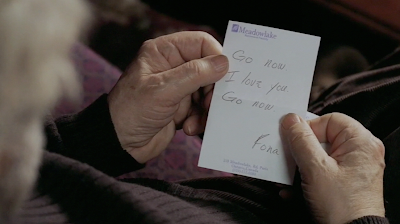 Meadowlake
Go now
I love you.
Go now.
Fiona